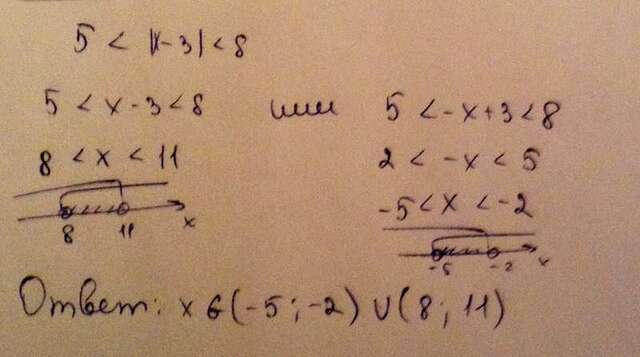 5 < |x-3| < 8
5 < x - 3 < 8 или 5 < -x + 3 < 8
8 < x < 11
2 < -x < 5
-5 < x < -2
8 11 x
-5 -2 x
Ответ: x ∈ (-5; -2) ∪ (8; 11)